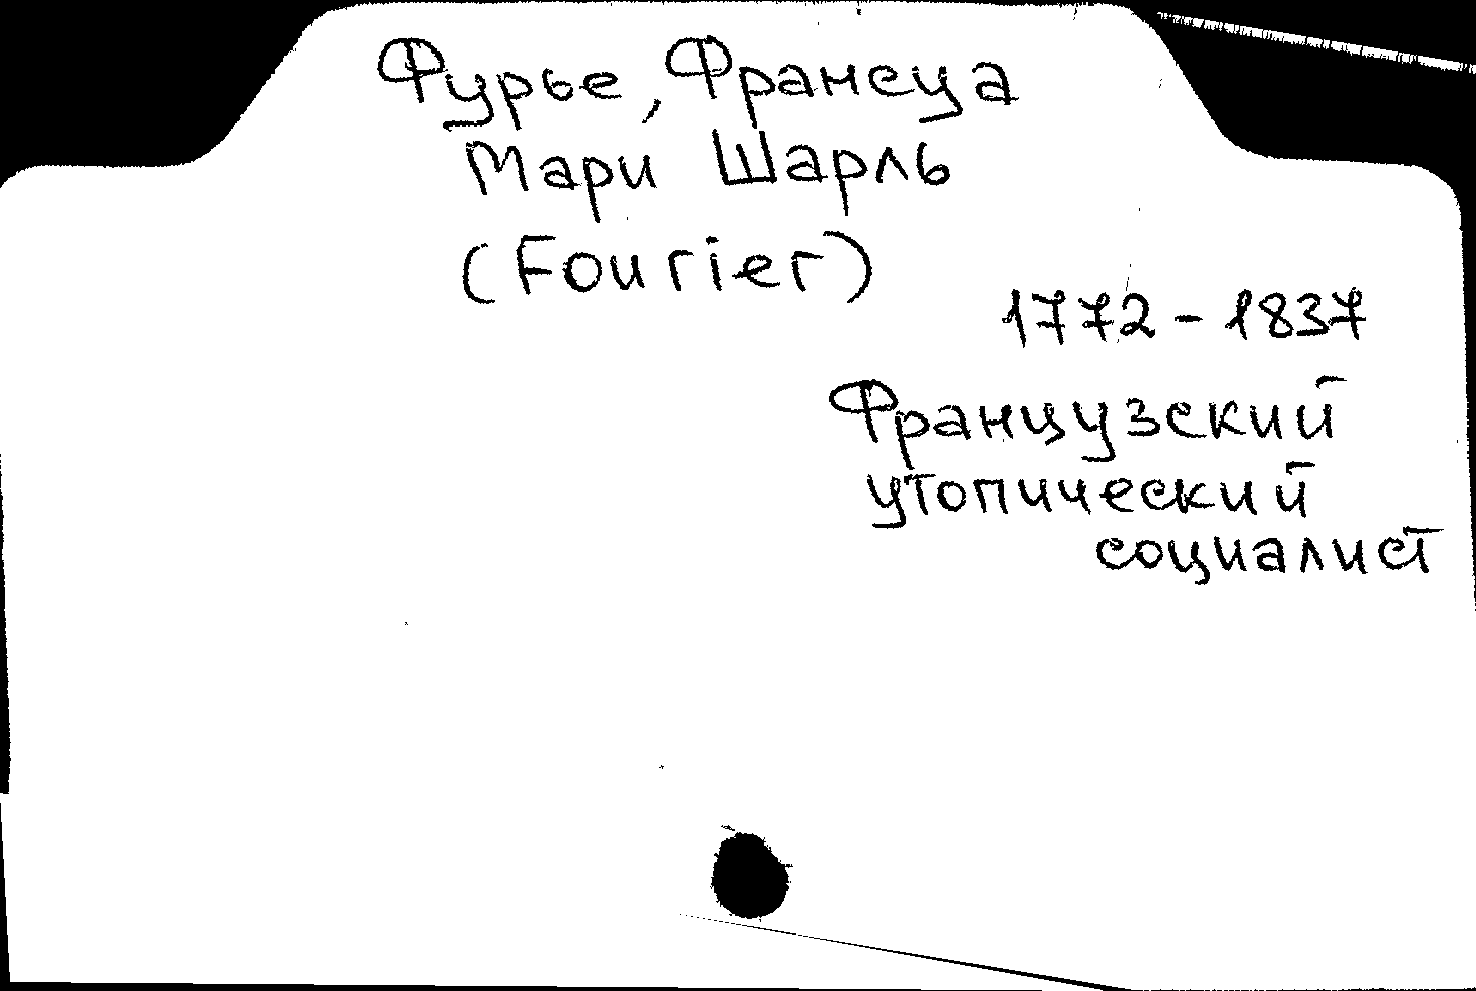 Фурье, Франсуа
Мари Шарль
(Fourier)
1772 - 1837
Французский
утопический
социалист